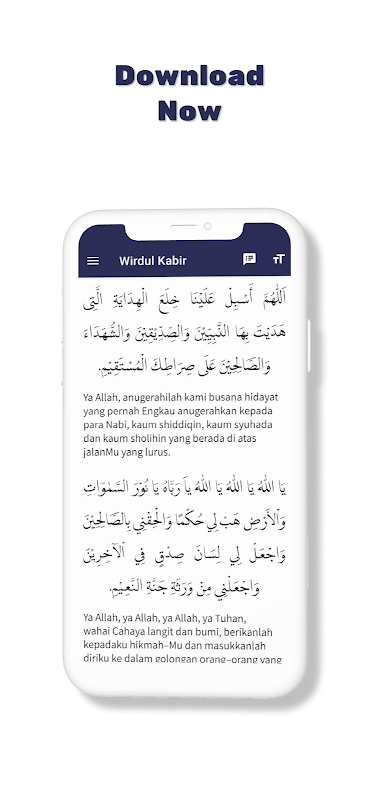 Download
Now
Wirdul Kabir
اَللّٰهُمَّ أَسْبِلْ عَلَيْنَا خِلَعَ الْهِدَايَةِ الَّتِى
هَدَيْتَ بِهَا النَّبِيِّيْنَ وَالصِّدِيْقِيْنَ وَالشُّهَدَاءَ
وَالصَّالِحِيْنَ عَلَى صِرَاطِكَ الْمُسْتَقِيْمِ.
Ya Allah, anugerahilah kami busana hidayat
yang pernah Engkau anugerahkan kepada
para Nabi, kaum shiddiqin, kaum syuhada
dan kaum sholihin yang berada di atas
jalanMu yang lurus.
يَا اَللهُ يَا اَللهُ يَا اَللهُ ياَ رَبَّاهُ يَا نُوْرَ السَّمٰوَاتِ
وَالْأَرْضِ هَبْ لِي حُكْمًا وَالْحِقْنِي بِالصَّالِحِيْنَ
وَاجْعَلْ لِي لِسَانَ صِدْقٍ فِي الْآخِرِيْنَ
وَاجْعَلْنِي مِنْ وَرَثَةِ جَنَّةِ النَّعِيْمِ.
Ya Allah, ya Allah, ya Allah, ya Tuhan,
wahai Cahaya langit dan bumi, berikanlah
kepadaku hikmah–Mu dan masukkanlah
diriku ke dalam golongan orang–orang yang